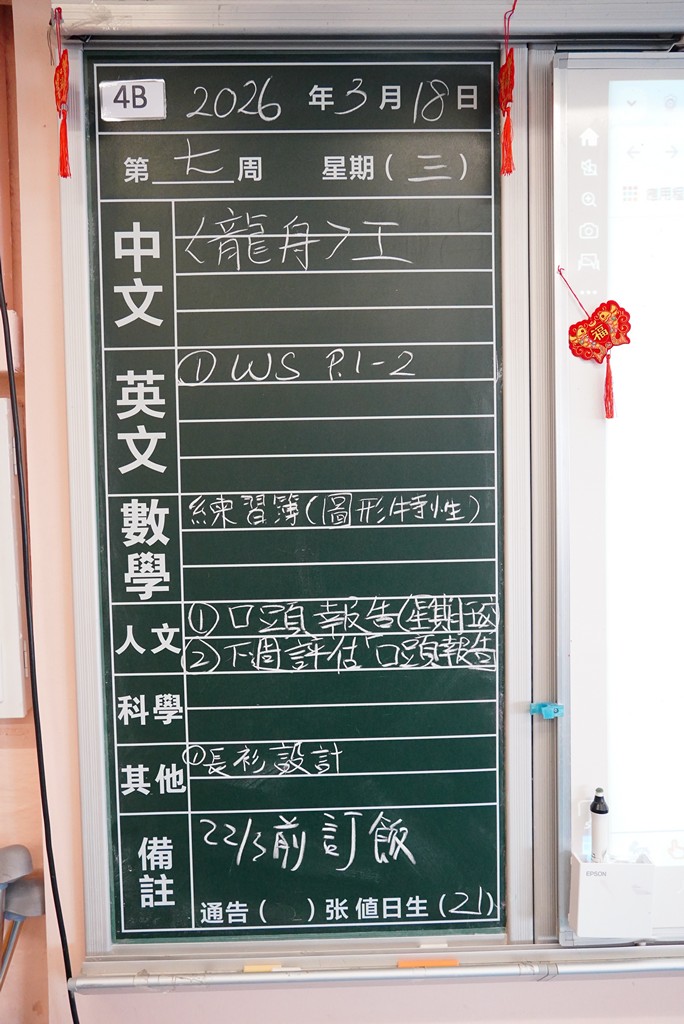 4B 2026 年 3 月 18 日
第 七 周 星期 ( 三 )
中文 〈龍舟〉工
英文 ① WS P.1-2
數學 練習簿(圖形特性)
人文 ① 口頭報告(星期五)
② 下週評估「口頭報告
科學
其他 ① 長衫設計
備註 22/3前訂飯
通告 ( ) 张 值日生 (21)
福
EPSON